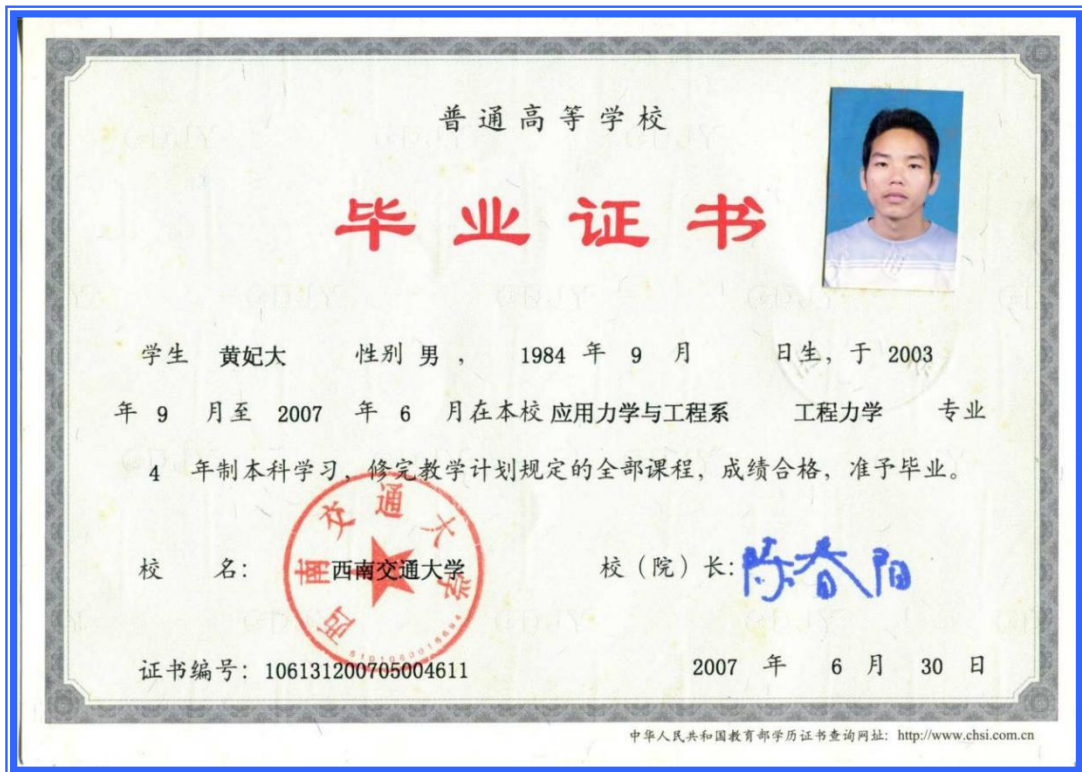 普通高等学校
毕业证书
学生 黄妃大 性别 男 ， 1984 年 9 月 日生，于 2003
年 9 月至 2007 年 6 月在本校 应用力学与工程系 工程力学 专业
4 年制本科学习，修完教学计划规定的全部课程，成绩合格，准予毕业。
西南交通大学
校 名： 西南交通大学 校（院）长：陈春阳
证书编号：106131200705004611 2007 年 6 月 30 日
中华人民共和国教育部学历证书查询网址：http://www.chsi.com.cn